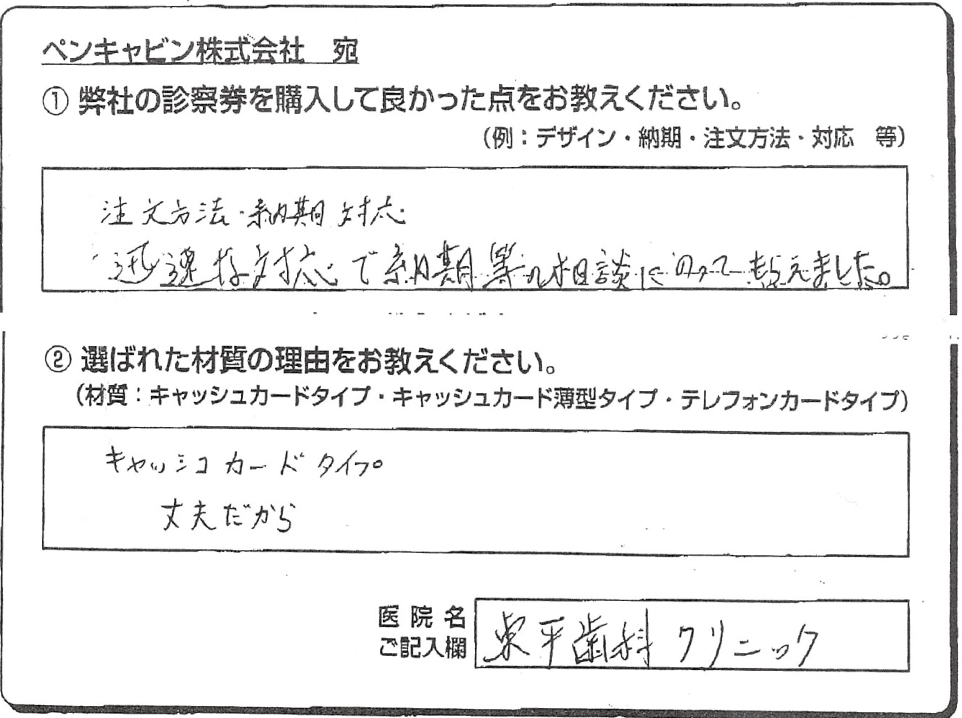 ペンキャビン株式会社 宛
① 弊社の診察券を購入して良かった点をお教えください。
(例:デザイン・納期・注文方法・対応 等)
注文方法・納期 対応
迅速な対応で納期等ご相談にのって もらえました。
② 選ばれた材質の理由をお教えください。
(材質:キャッシュカードタイプ・キャッシュカード薄型タイプ・テレフォンカードタイプ)
キャッシュカードタイプ。
丈夫だから
医院名
ご記入欄
平歯科クリニック